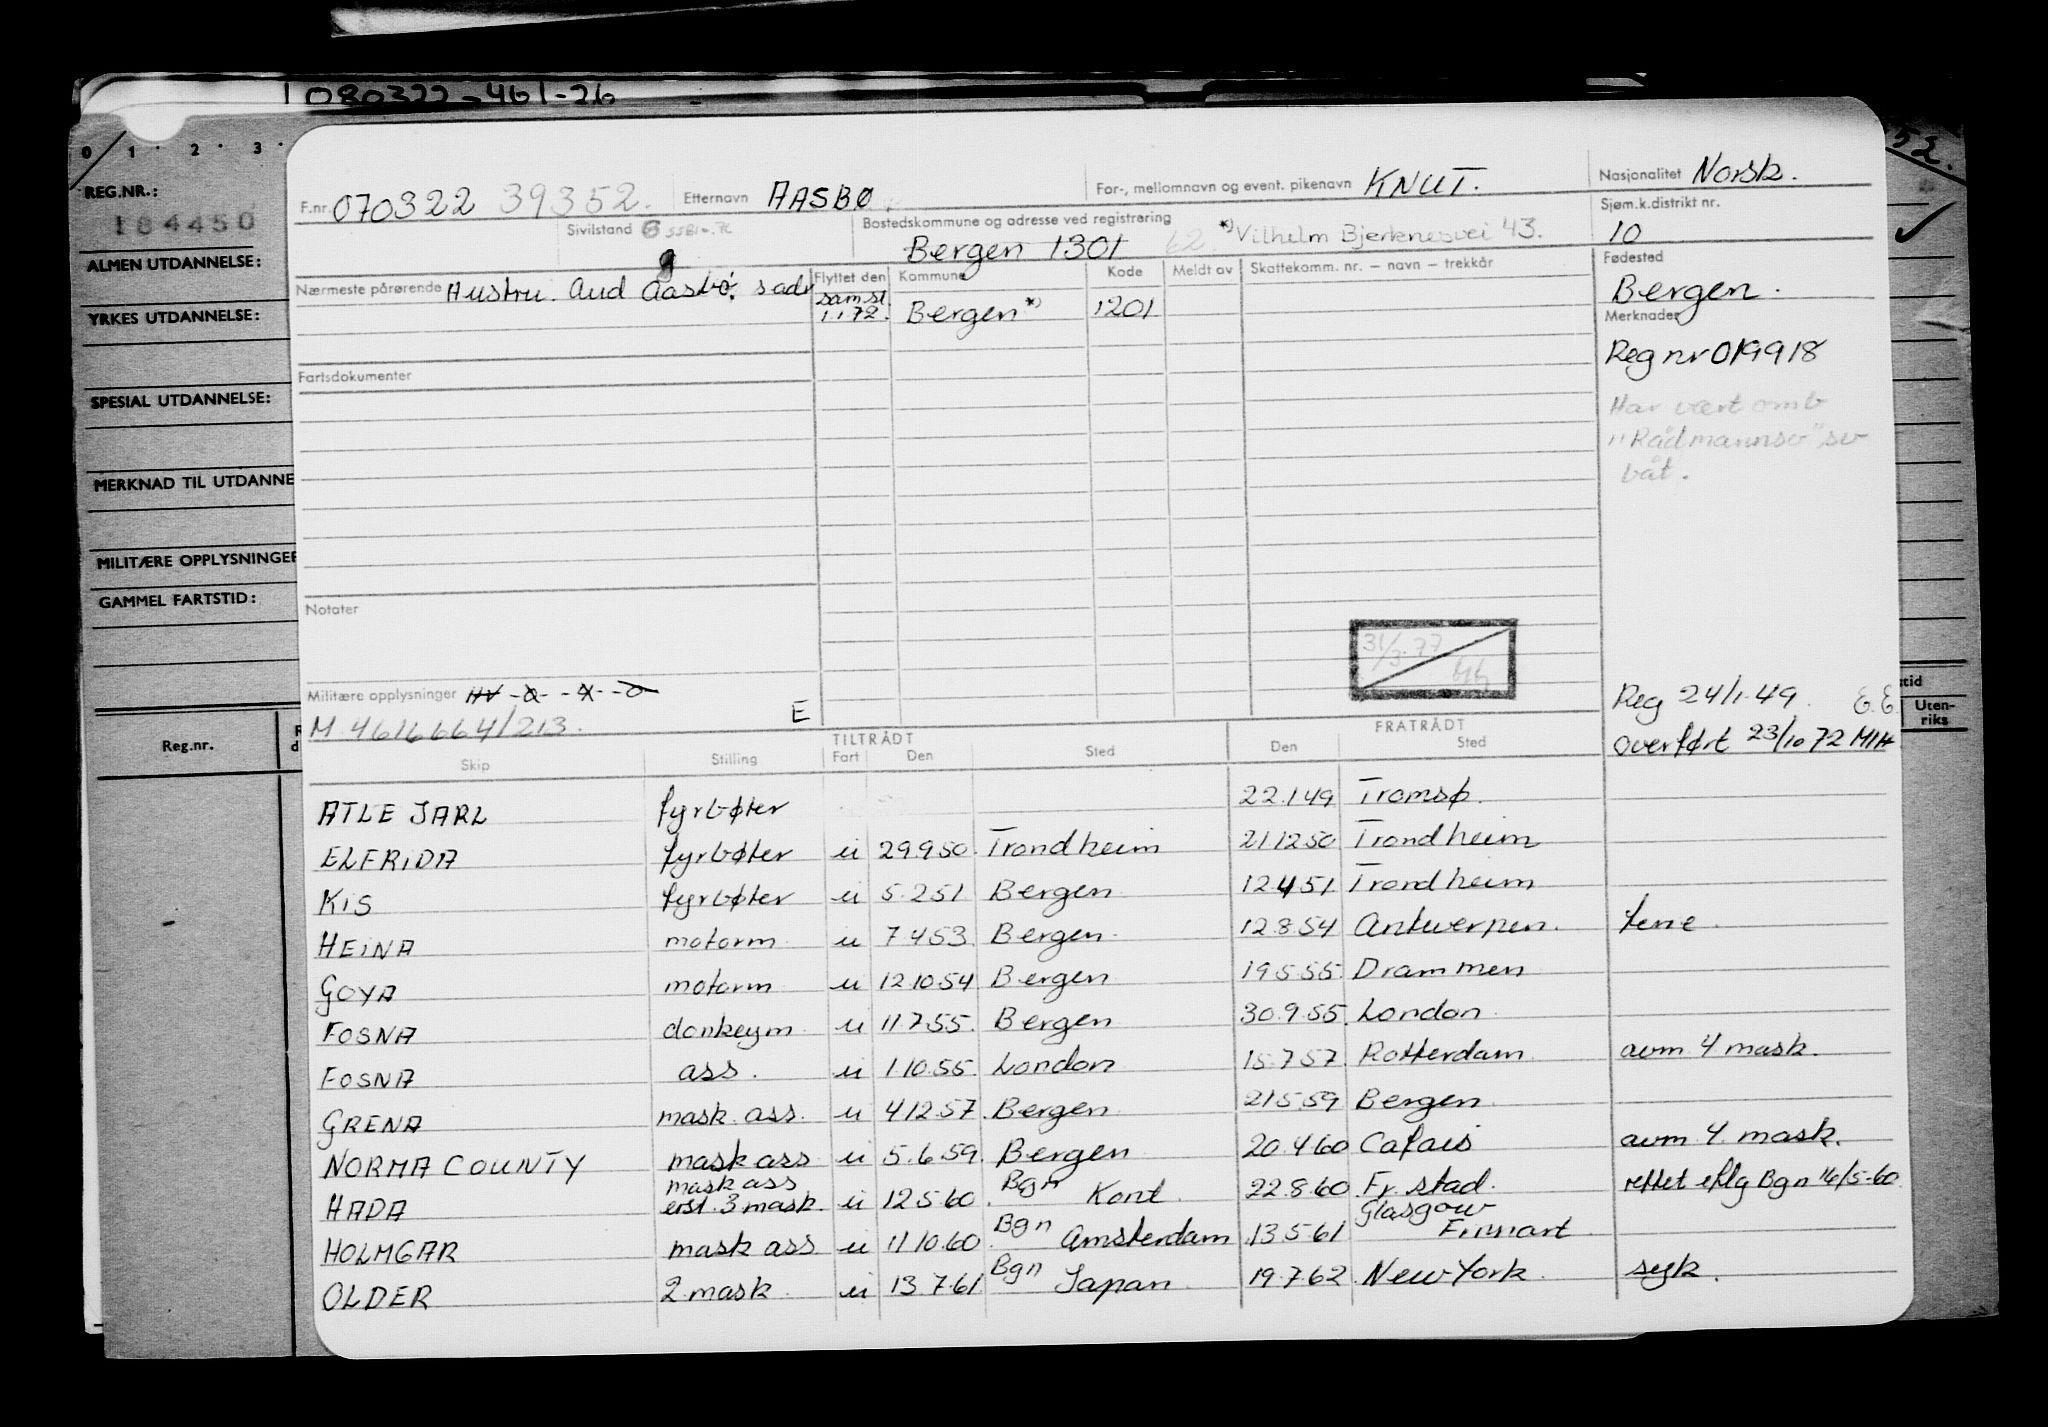 080322-461-26
0 1 2 3
52.
REG.NR.:
184450
ALMEN UTDANNELSE:
YRKES UTDANNELSE:
SPESIAL UTDANNELSE:
MERKNAD TIL UTDANNE
MILITÆRE OPPLYSNINGER
GAMMEL FARTSTID:
Reg.nr.
tid
Uten-
riks
F.nr. 070322 39352. Etternavn AASBØ For-, mellomnavn og event. pikenavn KNUT. Nasjonalitet Norsk.
Sivilstand G Bostedskommune og adresse ved registrering Sjøm.k.distrikt nr.
Bergen 1301 62. *) Vilhelm Bjerknesvei 43. 10
Nærmeste pårørende Hustru. Aud Aasbø. s adr Flyttet den Kommune Kode Meldt av Skattekomm. nr. – navn – trekkår Fødested
Bergen.
sam.st
1.1.72. Bergen *) 1201
Merknader
Reg nr 019918
Fartsdokumenter
Har vært omb
"Rådmannsø" sv
båt.
Notater
31/3.77
Militære opplysninger HV -O- -X- -O-
M 4616664/213. E
Reg 24/1.49. E.E.
overført 23/10 72 MIH
TILTRÅDT FRATRÅDT
Skip Stilling Fart Den Sted Den Sted
ATLE JARL fyrbøter 22.1.49 Tromsø.
ELFRIDA fyrbøter u 29.9.50. Trondheim 21.12.50 Trondheim
KIS fyrbøter u 5.2.51 Bergen 12.4.51 Trondheim
HEINA motorm u 7.4.53 Bergen 12.8.54 Antwerpen. ferie.
GOYA motorm u 12.10.54 Bergen 19.5.55. Drammen
FOSNA donkeym u 11.7.55. Bergen 30.9.55. London
FOSNA ass. u 1.10.55. London 15.7.57. Rotterdam avm 4 mask.
GRENA mask. ass. u 4.12.57. Bergen 21.5.59 Bergen
NORMA COUNTY mask ass u 5.6.59. Bergen 20.4.60 Calais avm 4. mask.
HADA mask ass erst. 3 mask. u 12.5.60. Bgn Kont. 22.8.60 Fr. stad. rettet eflg Bgn 16/5-60
HOLMGAR mask ass u 11.10.60. Bgn Amsterdam 13.5.61 Glasgow Finnart
OLDER 2 mask. u 13.7.61. Bgn Japan. 19.7.62. New York. syk.